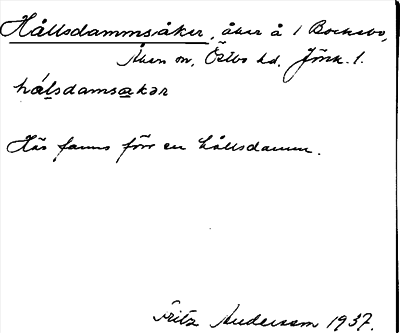 Hållsdammsåker, åker å 1 Bocksbo,
Åkers sn, Östbo hd. Jönk. l.
hålsdamsakər
Här fanns förr en hållsdamm.
Fritz Andersson 1937.